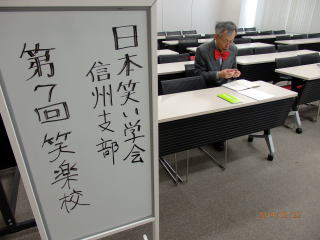 日本笑い学会
信州支部
第7回 笑楽校